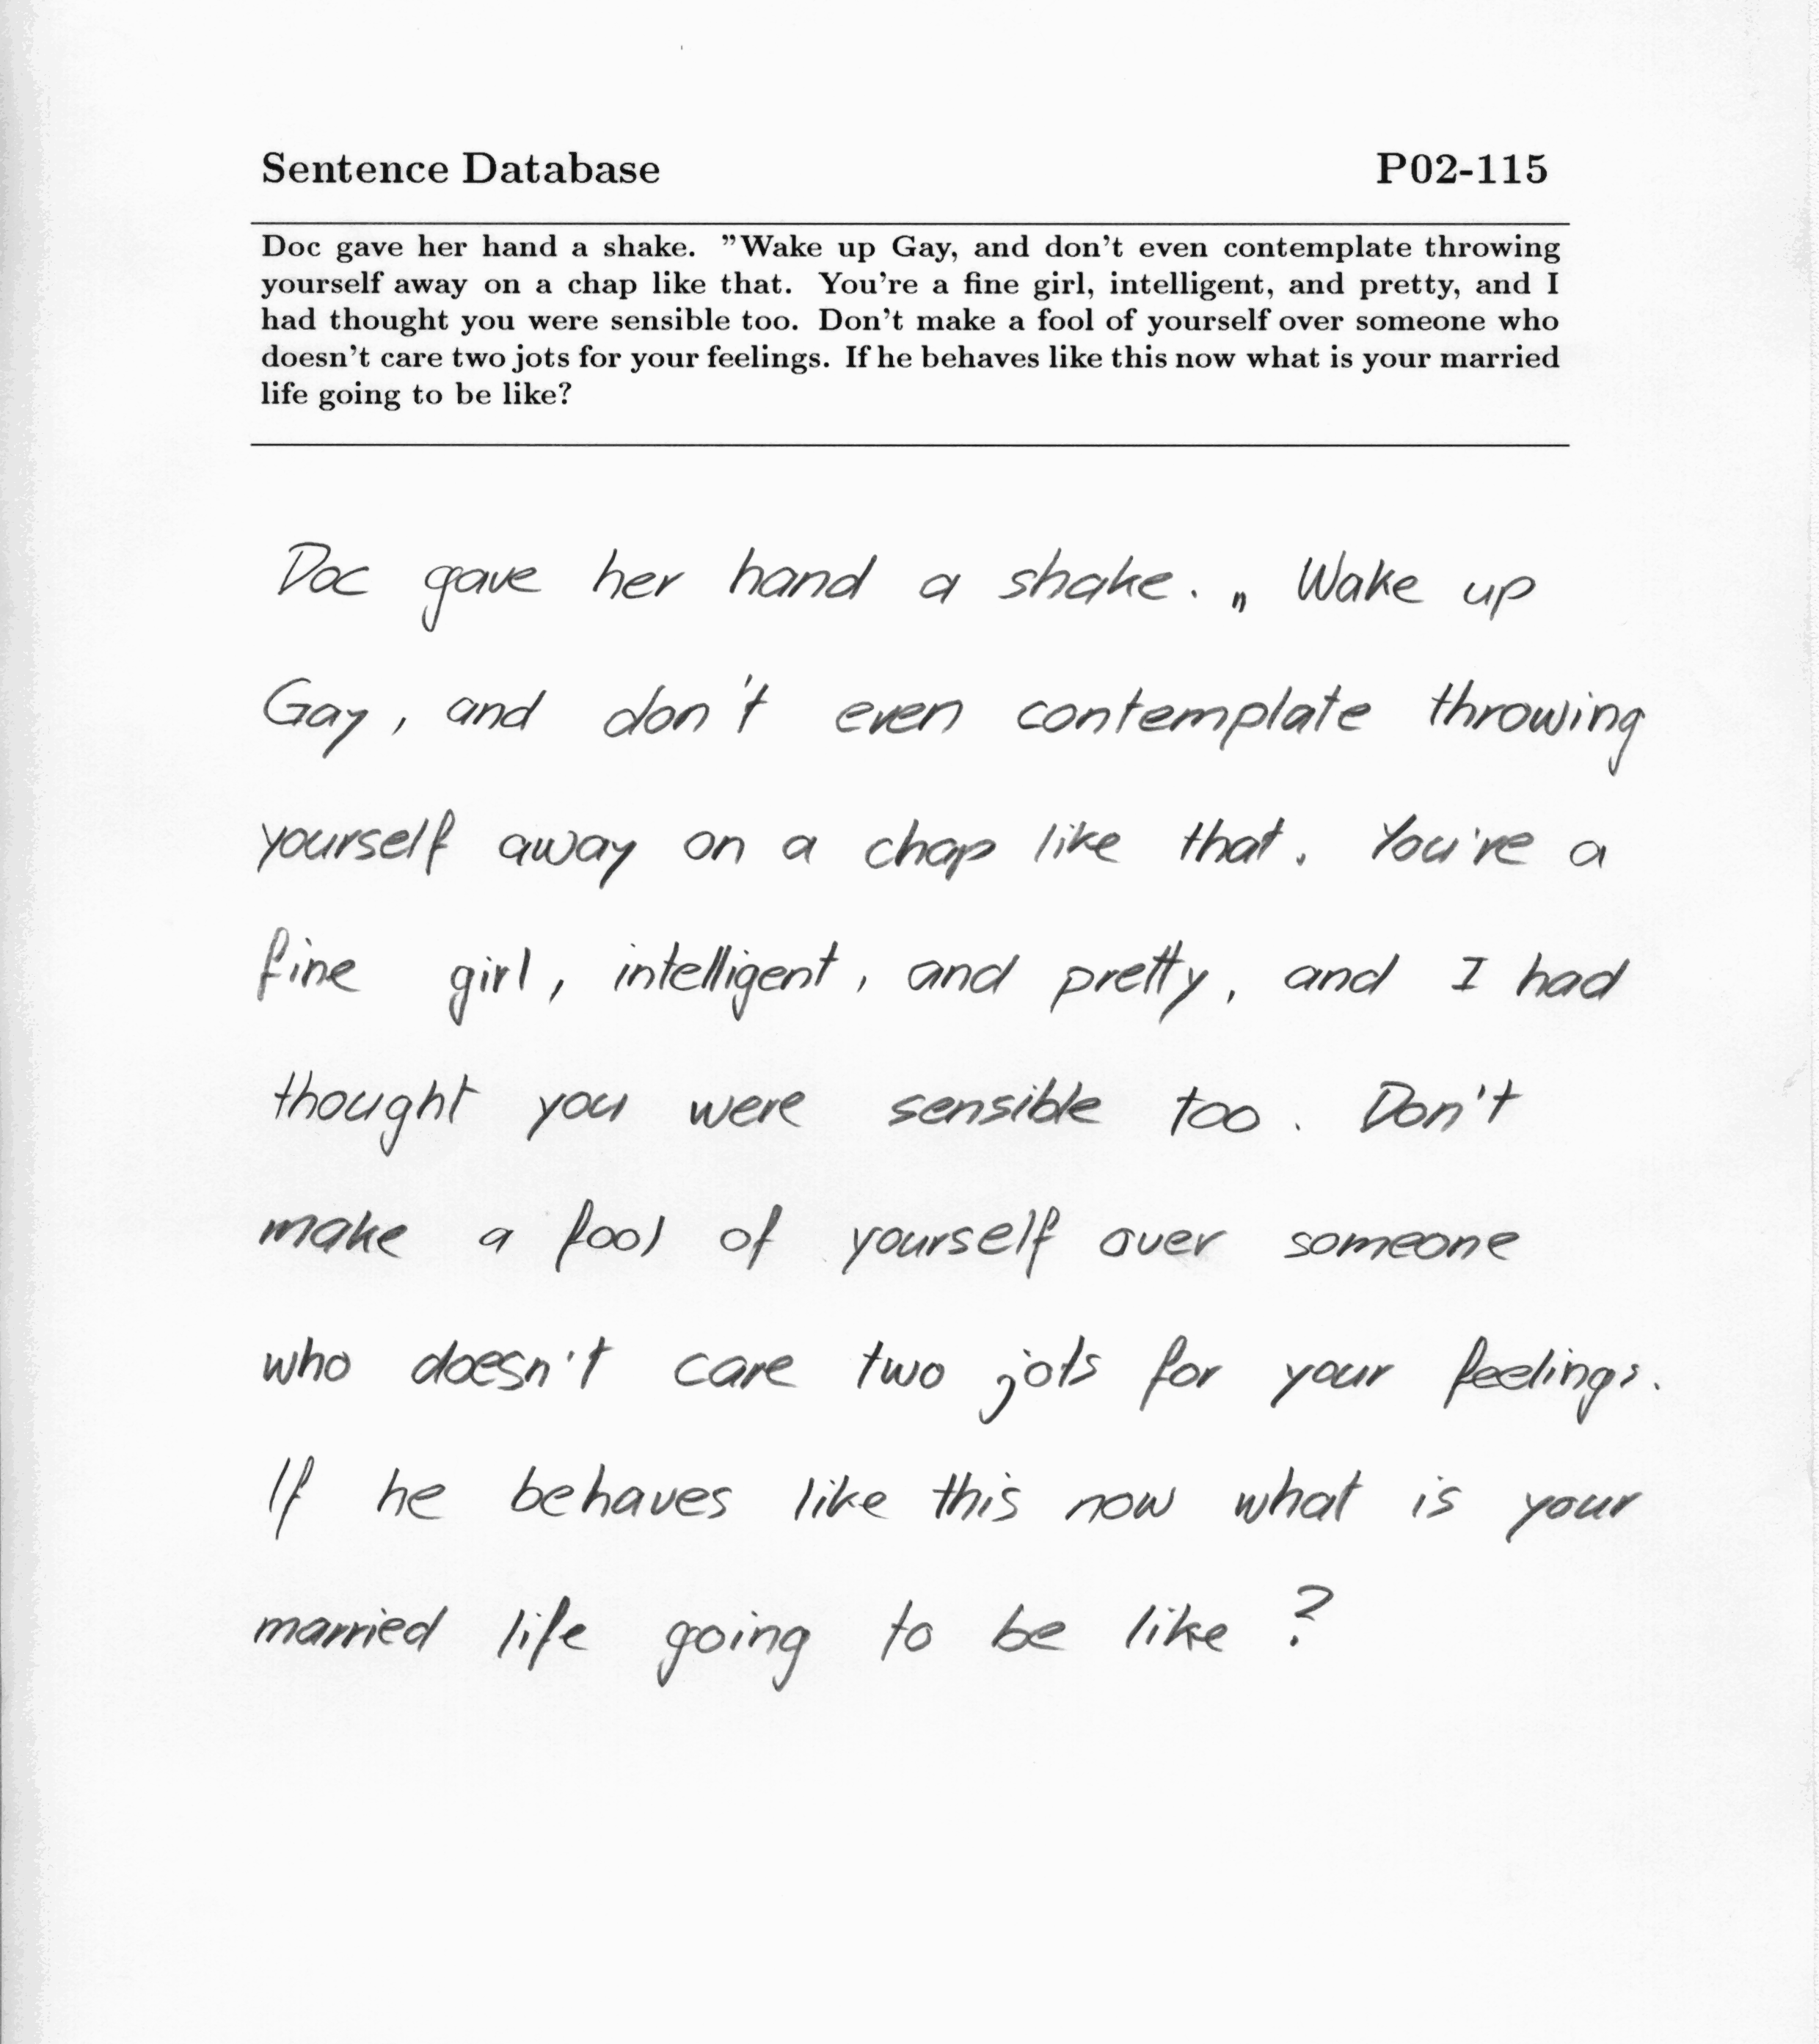 Sentence Database P02-115
Doc gave her hand a shake. "Wake up Gay, and don't even contemplate throwing
yourself away on a chap like that. You're a fine girl, intelligent, and pretty, and I
had thought you were sensible too. Don't make a fool of yourself over someone who
doesn't care two jots for your feelings. If he behaves like this now what is your married
life going to be like?
Doc gave her hand a shake. „ Wake up
Gay, and don't even contemplate throwing
yourself away on a chap like that. You're a
fine girl, intelligent, and pretty, and I had
thought you were sensible too. Don't
make a fool of yourself over someone
who doesn't care two jots for your feelings.
If he behaves like this now what is your
married life going to be like ?